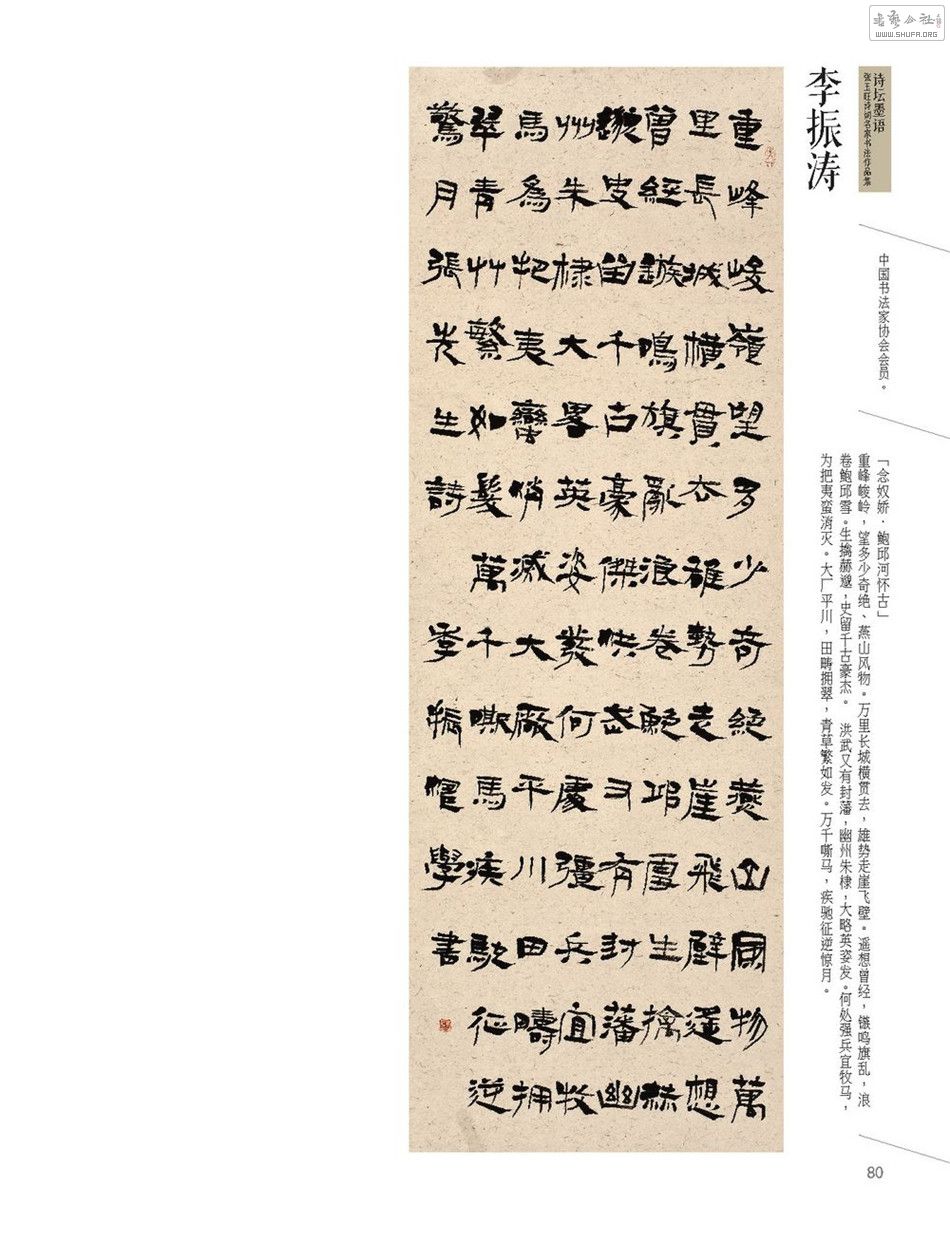 书艺公社
WWW.SHUFA.ORG
诗坛墨语
张玉旺诗词名家书法作品集
李振涛
中国书法家协会会员。
「念奴娇·鲍邱河怀古」
重峰峻岭，望多少奇绝、燕山风物。万里长城横贯去，雄势走崖飞壁。遥想曾经，镞鸣旗乱，浪
卷鲍邱雪。生擒赫邈，史留千古豪杰。 洪武又有封藩，幽州朱棣，大略英姿发。何处强兵宜牧马，
为把夷蛮消灭。大厂平川，田畴拥翠，青草繁如发。万千嘶马，疾驰征逆惊月。
重峰峻嶺望多少奇絕燕山風物萬
里長城橫貫去雄勢走崖飛壁遥想
曾經鏃鳴旗亂浪卷鮑邱雪生擒赫
邈史留千古豪傑洪武又有封藩幽
州朱棣大畧英姿發何處彊兵宜牧
馬為把夷蠻消滅大廠平川田疇拥
翠青艸繁如髮萬千嘶馬疾馳征逆
驚月張先生詩 李振濤學書
80